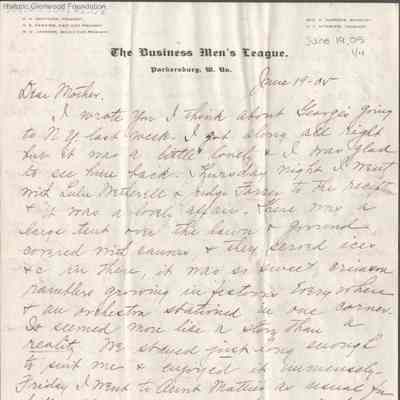 Historic Glenwood Foundation
June 19, 05
1/4
The Business Men's League.
Parkersburg, W. Va.
June 19-05
Dear Mother.
I wrote you I think about George's going
to N.Y. last week. I got along all right
but it was a little lonely & I was glad
to see him back. Thursday night I went
with Lulu & Judge to the
& it was a lovely affair. There was a
large tent over the lawn & ground,
covered with canvas & they served ices
&c in there, it was so sweet, crimson
ramblers growing in festoons everywhere
& an orchestra stationed in one corner.
It seemed more like a story than a
reality. We stayed just long enough
to suit me & enjoyed it immensely.
Friday I went to Aunt Mattie's as usual for